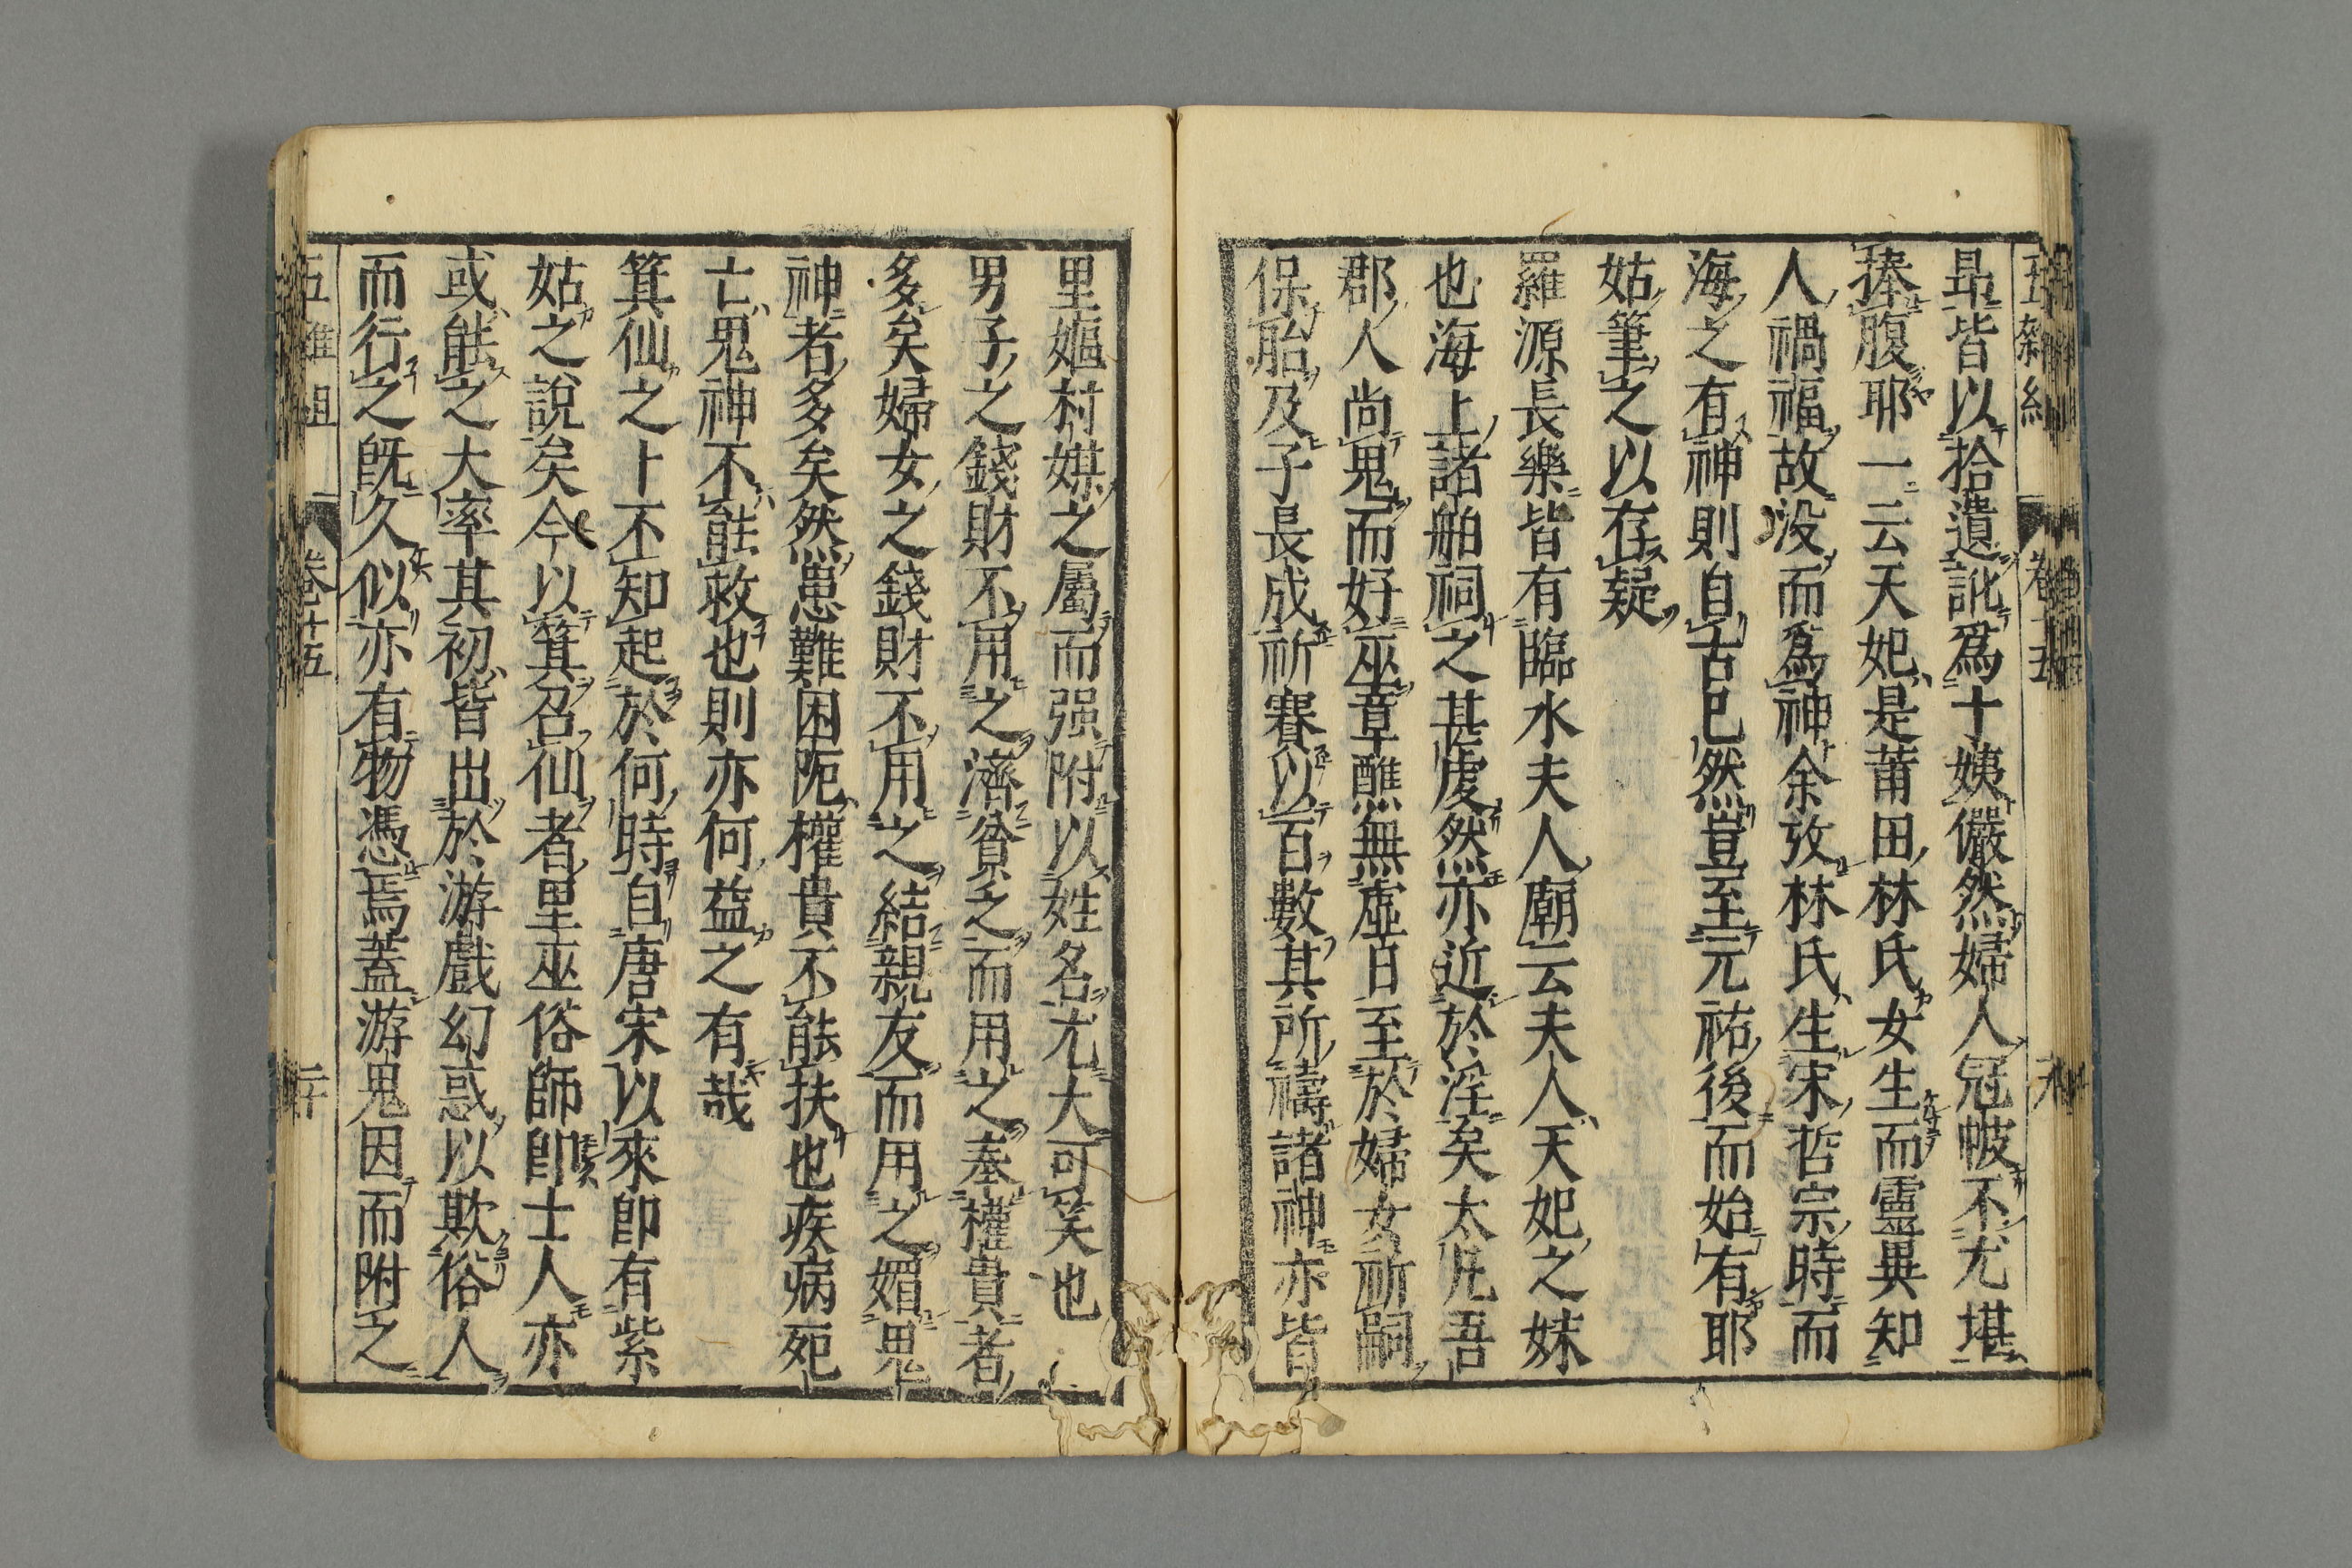 五雜組 卷十五 十九
是皆以拾遺訛爲十姨儼然婦人冠帔不尤堪
捧腹耶一云天妃是莆田林氏女生而靈異知
人禍福故没而爲神余攷林氏生宋哲宗時而
海之有神則自古已然豈至元祐後而始有耶
姑筆之以存疑
羅源長樂皆有臨水夫人廟云夫人天妃之妹
也海上諸舶祠之甚虔然亦近於淫矣太凡吾
郡人尚鬼而好巫章醮無虚日至於婦女祈嗣
保胎及子長成祈賽以百數其所禱諸神亦皆
里嫗村媒之屬而强附以姓名尤大可笑也
男子之錢財不用之濟貧乏而用之奉權貴者
多矣婦女之錢財不用之結親友而用之媚鬼
神者多矣然患難困阨權貴不能扶也疾病死
亡鬼神不能救也則亦何益之有哉
箕仙之卜不知起於何時自唐宋以來卽有紫
姑之說矣今以箕召仙者里巫俗師卽士人亦
或能之大率其初皆出於游戲幻惑以欺俗人
而行之既久似亦有物憑焉蓋游鬼因而附之
五雜組 卷十五 二十